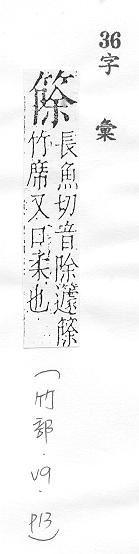 36
字彙
篨
長魚切音除籧篨
竹席又口柔也
(竹部·V9·P13)